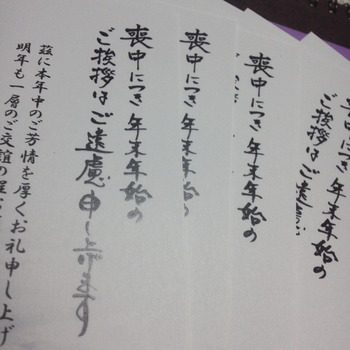 喪中につき年末年始の
ご挨拶は
喪中につき年末年始の
喪中につき年末年始の
喪中につき年末年始の
ご挨拶はご遠慮申し上げます
茲に本年中のご芳情を厚くお礼申し上げ
明年も一層のご交誼の